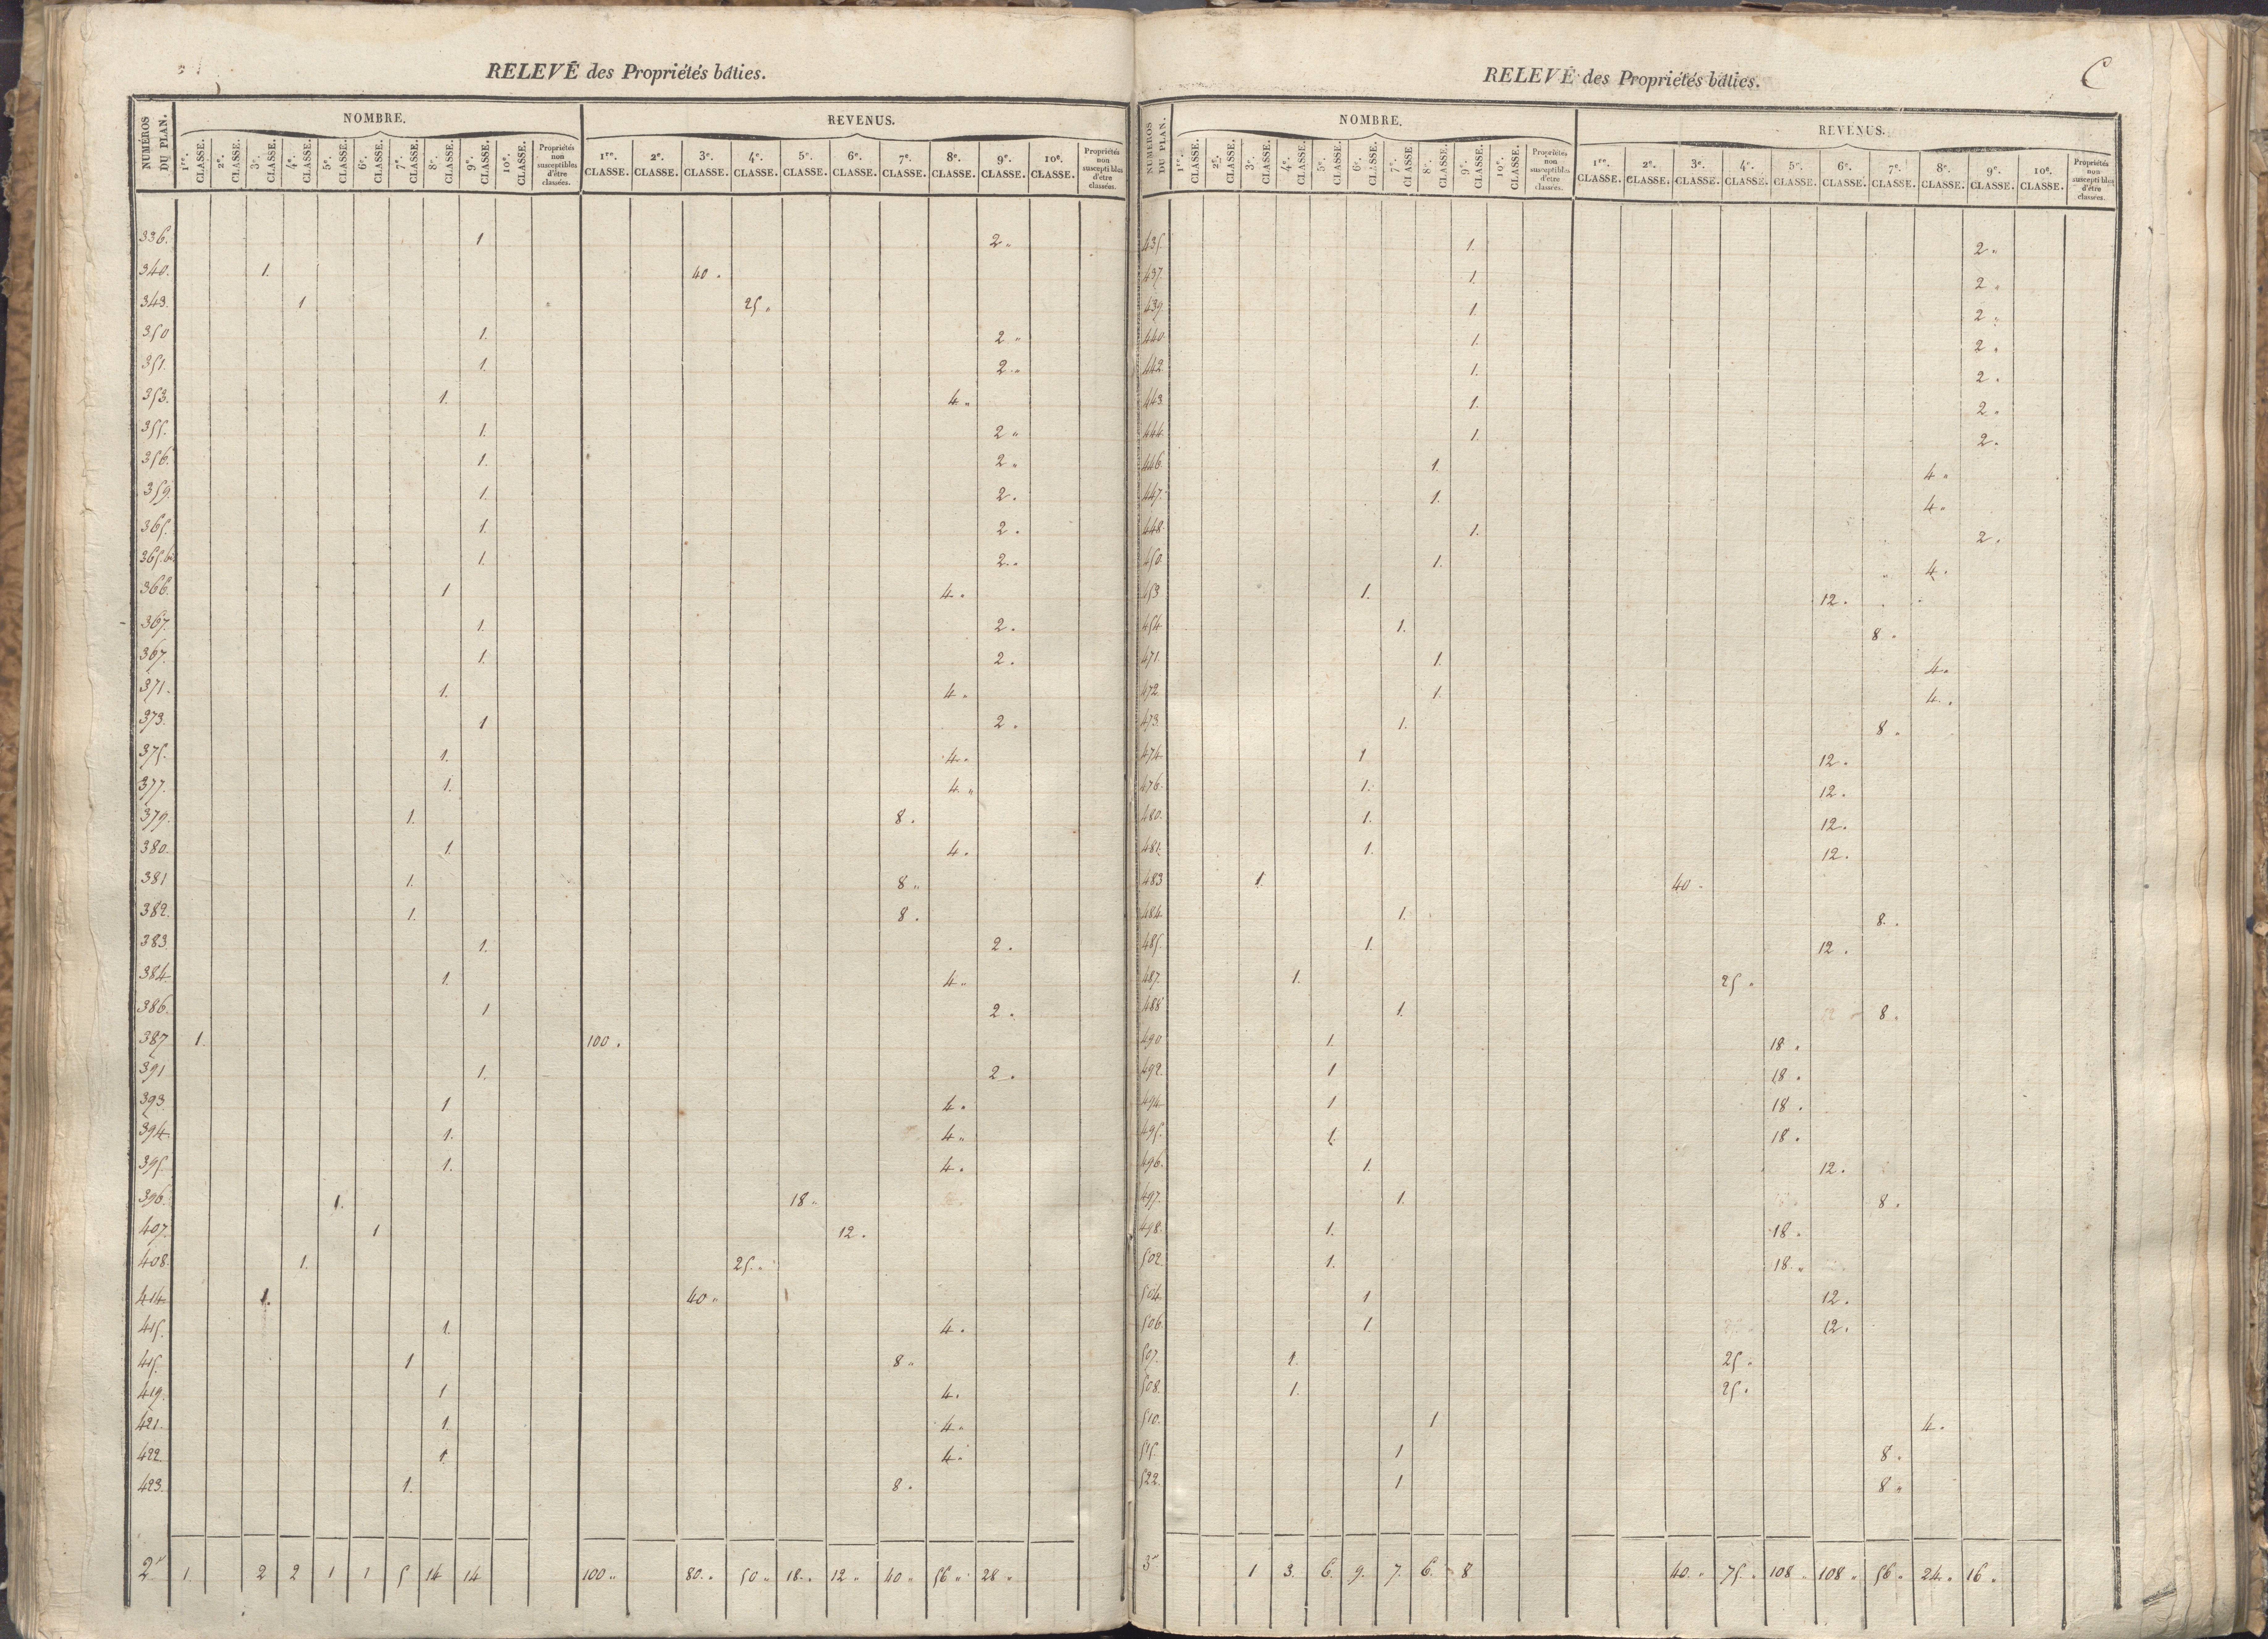 RELEVÉ des Propriétés bâties.
NUMÉROS DU PLAN. NOMBRE. REVENUS.
1re. CLASSE. 2e. CLASSE. 3e. CLASSE. 4e. CLASSE. 5e. CLASSE. 6e. CLASSE. 7e. CLASSE. 8e. CLASSE. 9e. CLASSE. 10e. CLASSE. Propriétés non susceptibles d'être classées. 1re. CLASSE. 2e. CLASSE. 3e. CLASSE. 4e. CLASSE. 5e. CLASSE. 6e. CLASSE. 7e. CLASSE. 8e. CLASSE. 9e. CLASSE. 10e. CLASSE. Propriétés non susceptibles d'être classées.
336. 1 2 "
340. 1. 40 "
343. 1 25 "
350 1. 2 "
351. 1. 2 "
353. 1. 4 "
355. 1. 2 "
356. 1. 2 "
359. 1. 2 "
365. 1. 2 "
365. bis 1. 2 "
366. 1 4 "
367. 1. 2 "
367. 1. 2 "
371. 1. 4 "
373. 1 2 "
375. 1. 4 "
377. 1. 4 "
379. 1. 8 "
380. 1. 4 "
381 1. 8 "
382. 1. 8 "
383 1. 2 "
384. 1. 4 "
386. 1 2 "
387 1. 100 "
391 1. 2 "
393 1 4 "
394. 1. 4 "
395. 1. 4 "
396. 1. 18 "
407. 1 12 "
408. 1. 25 "
414 1. 40 "
415. 1. 4 "
415. 1 8 "
419. 1 4 "
421. 1. 4 "
422. 1. 4 "
423. 1. 8 "
2e 1. 2 2 1 1 5 14 14 100 " 80 " 50 " 18 " 12 " 40 " 56 " 28 "
RELEVÉ des Propriétés bâties.
C
NUMÉROS DU PLAN. NOMBRE. REVENUS.
1re. CLASSE. 2e. CLASSE. 3e. CLASSE. 4e. CLASSE. 5e. CLASSE. 6e. CLASSE. 7e. CLASSE 8e. CLASSE. 9e. CLASSE. 10e. CLASSE. Propriétés non susceptibles d'être classées. 1re. CLASSE. 2e. CLASSE. 3e. CLASSE. 4e. CLASSE. 5e. CLASSE. 6e. CLASSE. 7e. CLASSE. 8e. CLASSE. 9e. CLASSE. 10e. CLASSE. Propriétés non susceptibles d'être classées.
435. 1. 2 "
437. 1. 2 "
439 1. 2 "
440. 1. 2 "
442 1. 2 "
443. 1. 2 "
444. 1. 2 "
446. 1. 4 "
447. 1. 4 "
448. 1. 2 "
450. 1. 4 "
453 1. 12 "
454 1. 8 "
471. 1. 4 "
472. 1. 4 "
473. 1. 8 "
474 1 12 "
476. 1. 12 "
480. 1. 12 "
481. 1. 12 "
483 1. 40 "
484. 1. 8 "
485. 1. 12 "
487. 1. 25 "
488 1. 8 "
490. 1. 18 "
492. 1 18 "
494. 1 18 "
495. 1. 18 "
496. 1. 12 "
497. 1. 8 "
498. 1. 18 "
502. 1. 18 "
504 1 12 "
506. 1. 12 "
507. 1. 25 "
508. 1. 25 "
510. 1 4 "
515. 1 8 "
522. 1 8 "
3e 1 3. 6. 9. 7. 6. 8 40 " 75 " 108 " 108 " 56 " 24 " 16 "